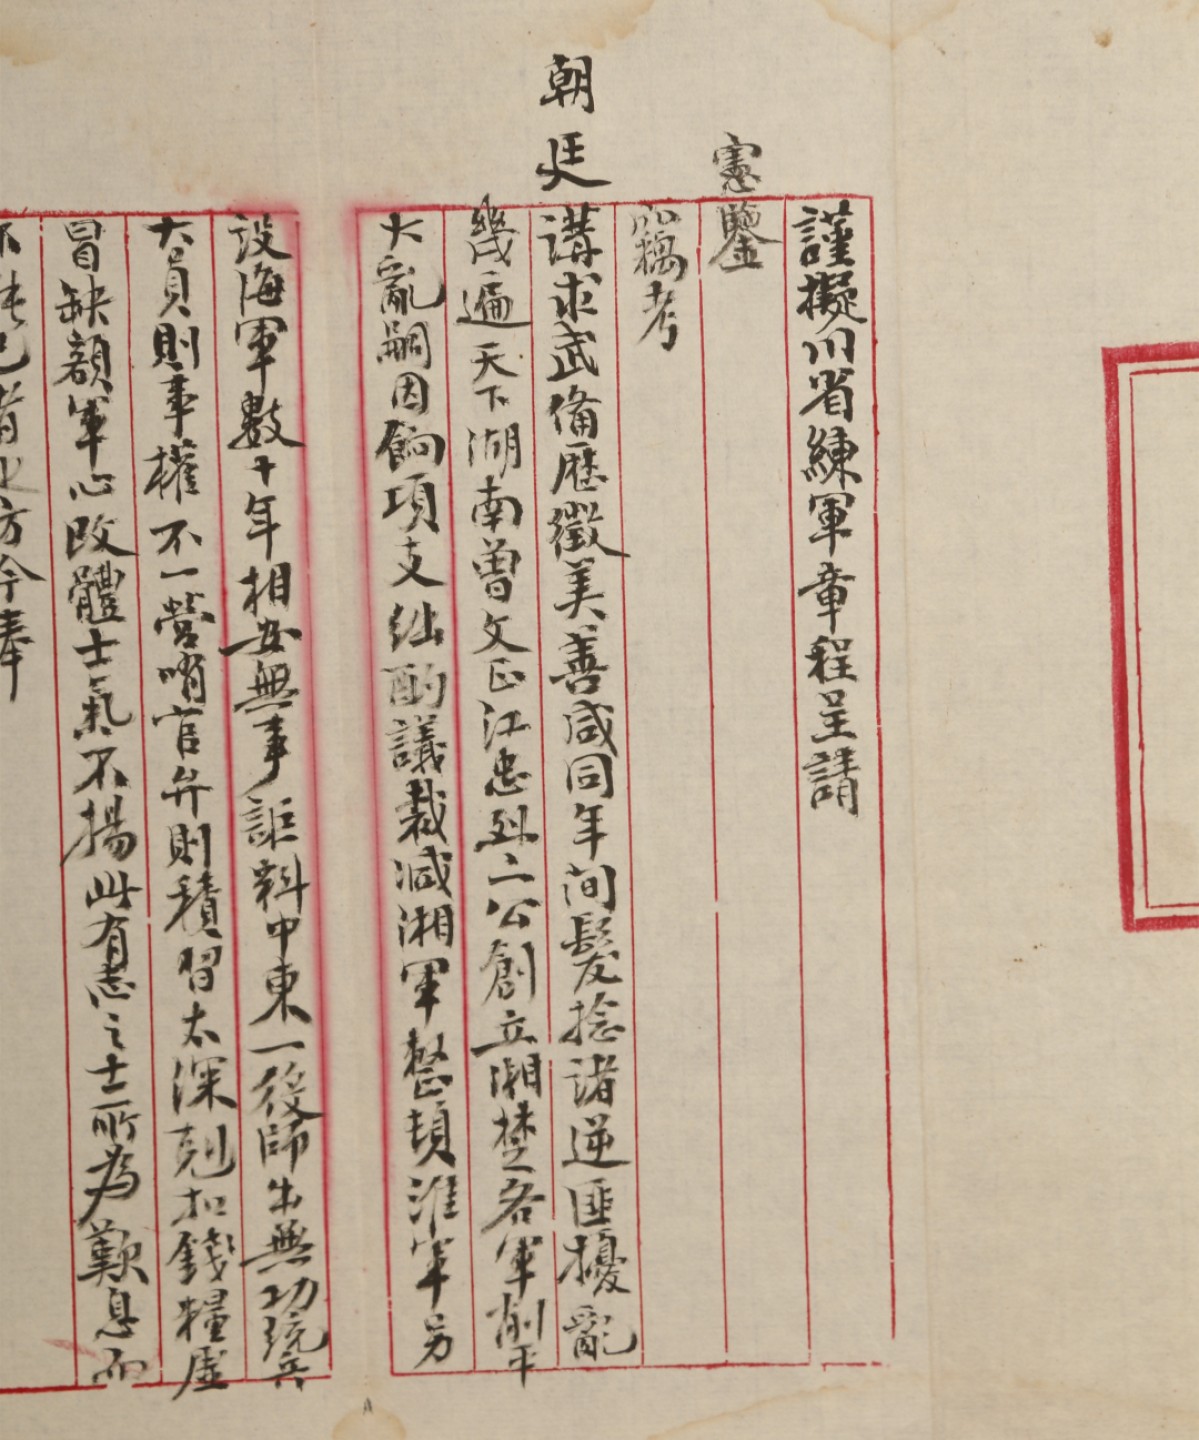 謹擬川省練軍章程呈請
憲鑒
竊考
朝廷講求武備歷徵美善咸同年間髮捻諸逆匪擾亂
幾遍天下湖南曾文正江忠烈二公創立湘楚各軍削平
大亂嗣因餉項支絀酌議裁減湘軍整頓淮軍另
設海軍數十年相安無事詎料中東一役師出無功統兵
大員則事權不一營哨官弁則積習太深剋扣錢糧虛
冒缺額軍心改體士氣不揚此有志之士所為歎息而
不能已者也方今奉